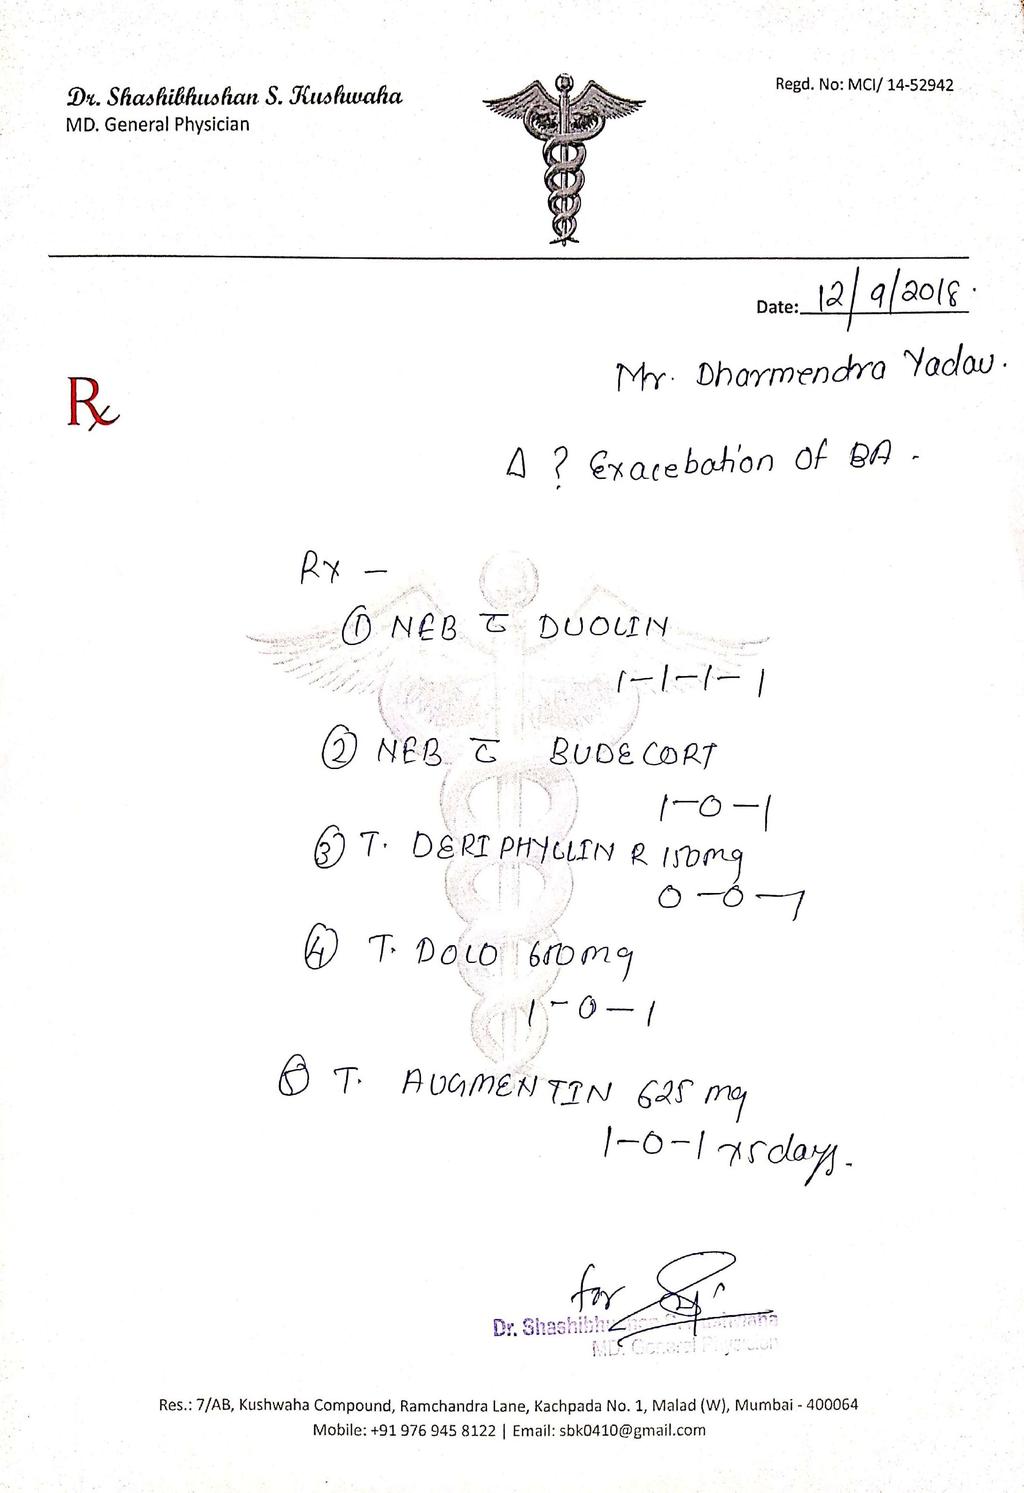 Dr. Shashibhushan S. Kushwaha
MD. General Physician
Regd. No: MCI/ 14-52942
Date: 12/9/2018.
Mr. Dharmendra Yadav.
Rx
Δ ? Exacebation of BA.
Rx –
① NEB c̄ DUOLIN
1-1-1-1
② NEB c̄ BUDECORT
1-0-1
③ T. DERIPHYLLIN R 150mg
0-0-1
④ T. DOLO 650mg
1-0-1
⑤ T. AUGMENTIN 625 mg
1-0-1 x5days.
for
Dr. Shashibhushan S. Kushwaha
MD. General Physician
Res.: 7/AB, Kushwaha Compound, Ramchandra Lane, Kachpada No. 1, Malad (W), Mumbai - 400064
Mobile: +91 976 945 8122 | Email: sbk0410@gmail.com